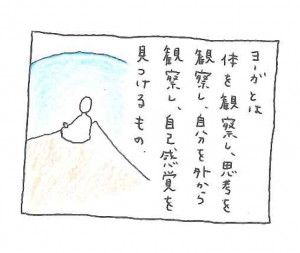 ヨーガとは
体を観察し、思考を
観察し、自分を外から
観察し、自己感覚を
見つけるもの.